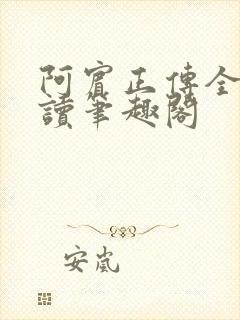 阿賓正傳全
讀筆趣閣
安嵐